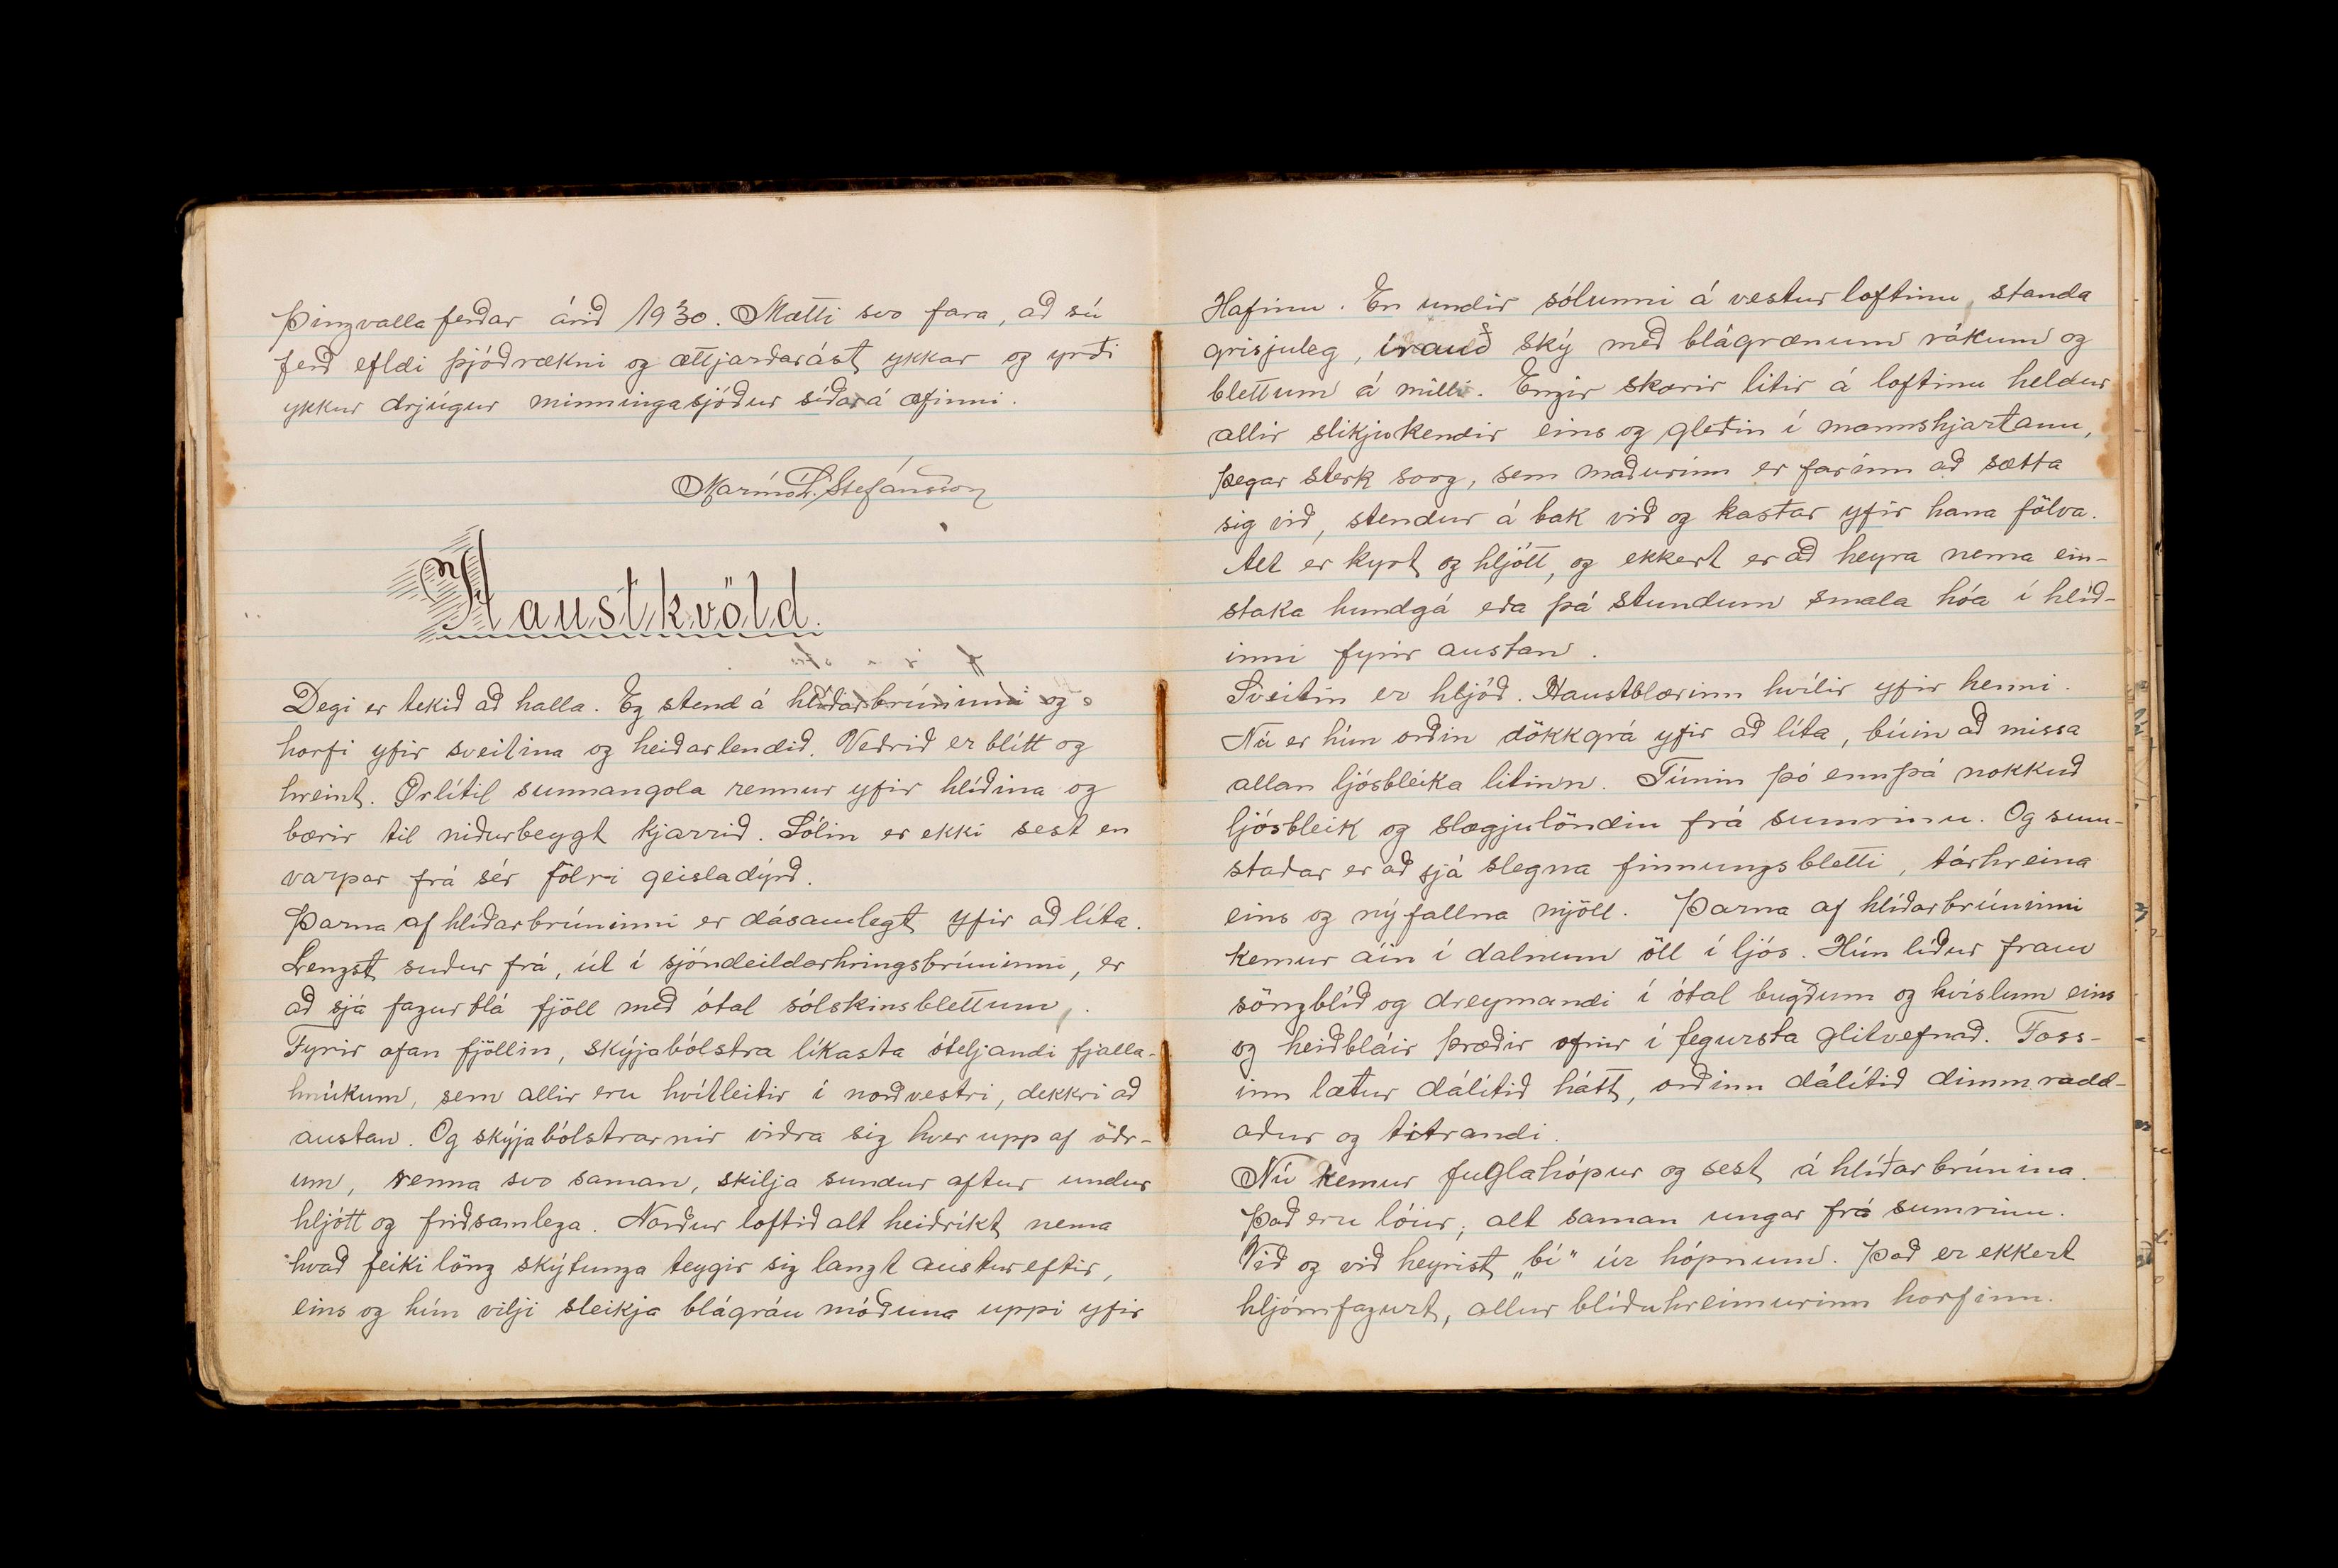 Þingvallaferðar árið 1930. Mætti svo fara, að sú
ferð efldi þjóðrækni og ættjarðarást ykkar og yrði
ykkur drjúgur minningasjóður síðar á æfinni.
Marínó L. Stefánsson
Haustkvöld.
Degi er tekið að halla. Eg stend á hlíðarbrúninni og
horfi yfir sveitina og heiðarlendið. Veðrið er blítt og
hreint. Örlítil sunnangola rennur yfir hlíðina og
bærir til niðurbeygt kjarrið. Sólin er ekki sest en
varpar frá sér fölri geisladýrð.
Þarna af hlíðarbrúninni er dásamlegt yfir að líta.
Lengst suður frá, út í sjóndeildarhringsbrúninni, er
að sjá fagurblá fjöll með ótal sólskinsblettum.
Fyrir ofan fjöllin, skýjabólstra líkasta óteljandi fjalla-
hnúkum, sem allir eru hvítleitir í norðvestri, dekkri að
austan. Og skýjabólstrarnir viðra sig hver upp af öðr-
um, renna svo saman, skilja sundur aftur undur
hljótt og friðsamlega. Norður loftið alt heiðríkt nema
hvað feiki löng skýtunga teygir sig langt austureftir,
eins og hún vilji sleikja blágráu móðuna uppi yfir
Hafinu. En undir sólunni á vestur loftinu, standa
grisjuleg, írauð ský með blágrænum rákum og
blettum á milli. Engir skærir litir á loftinu heldur
allir slikjukendir eins og gleðin í mannshjartanu,
þegar sterk sorg, sem maðurinn er farinn að sætta
sig við, stendur á bak við og kastar yfir hana fölva.
Alt er kyrt og hljótt, og ekkert er að heyra nema ein-
staka hundgá eða þá stundum smala hóa í hlíð-
inni fyrir austan.
Sveitin er hljóð. Haustblærinn hvílir yfir henni.
Nú er hún orðin dökkgrá yfir að líta, búin að missa
allan ljósbleika litinn. Túnin þó ennþá nokkuð
ljósbleik og slægjulöndin frá sumrinu. Og sum-
staðar er að sjá slegna finnungsbletti, tárhreina
eins og nýfallna mjöll. Þarna af hlíðarbrúninni
kemur áin í dalnum öll í ljós. Hún líður fram
söngblíð og dreymandi í ótal bugðum og kvíslum eins
og heiðbláir þræðir ofnir í fegursta glitvefnað. Foss-
inn lætur dálítið hátt, orðinn dálítið dimmradd-
aður og titrandi.
Nú kemur fuglahópur og sest á hlíðarbrúnina.
Það eru lóur, alt saman ungar frá sumrinu.
Við og við heyrist „bí" úr hópnum. Það er ekkert
hljómfagurt, allur blíðuhreimurinn horfinn.